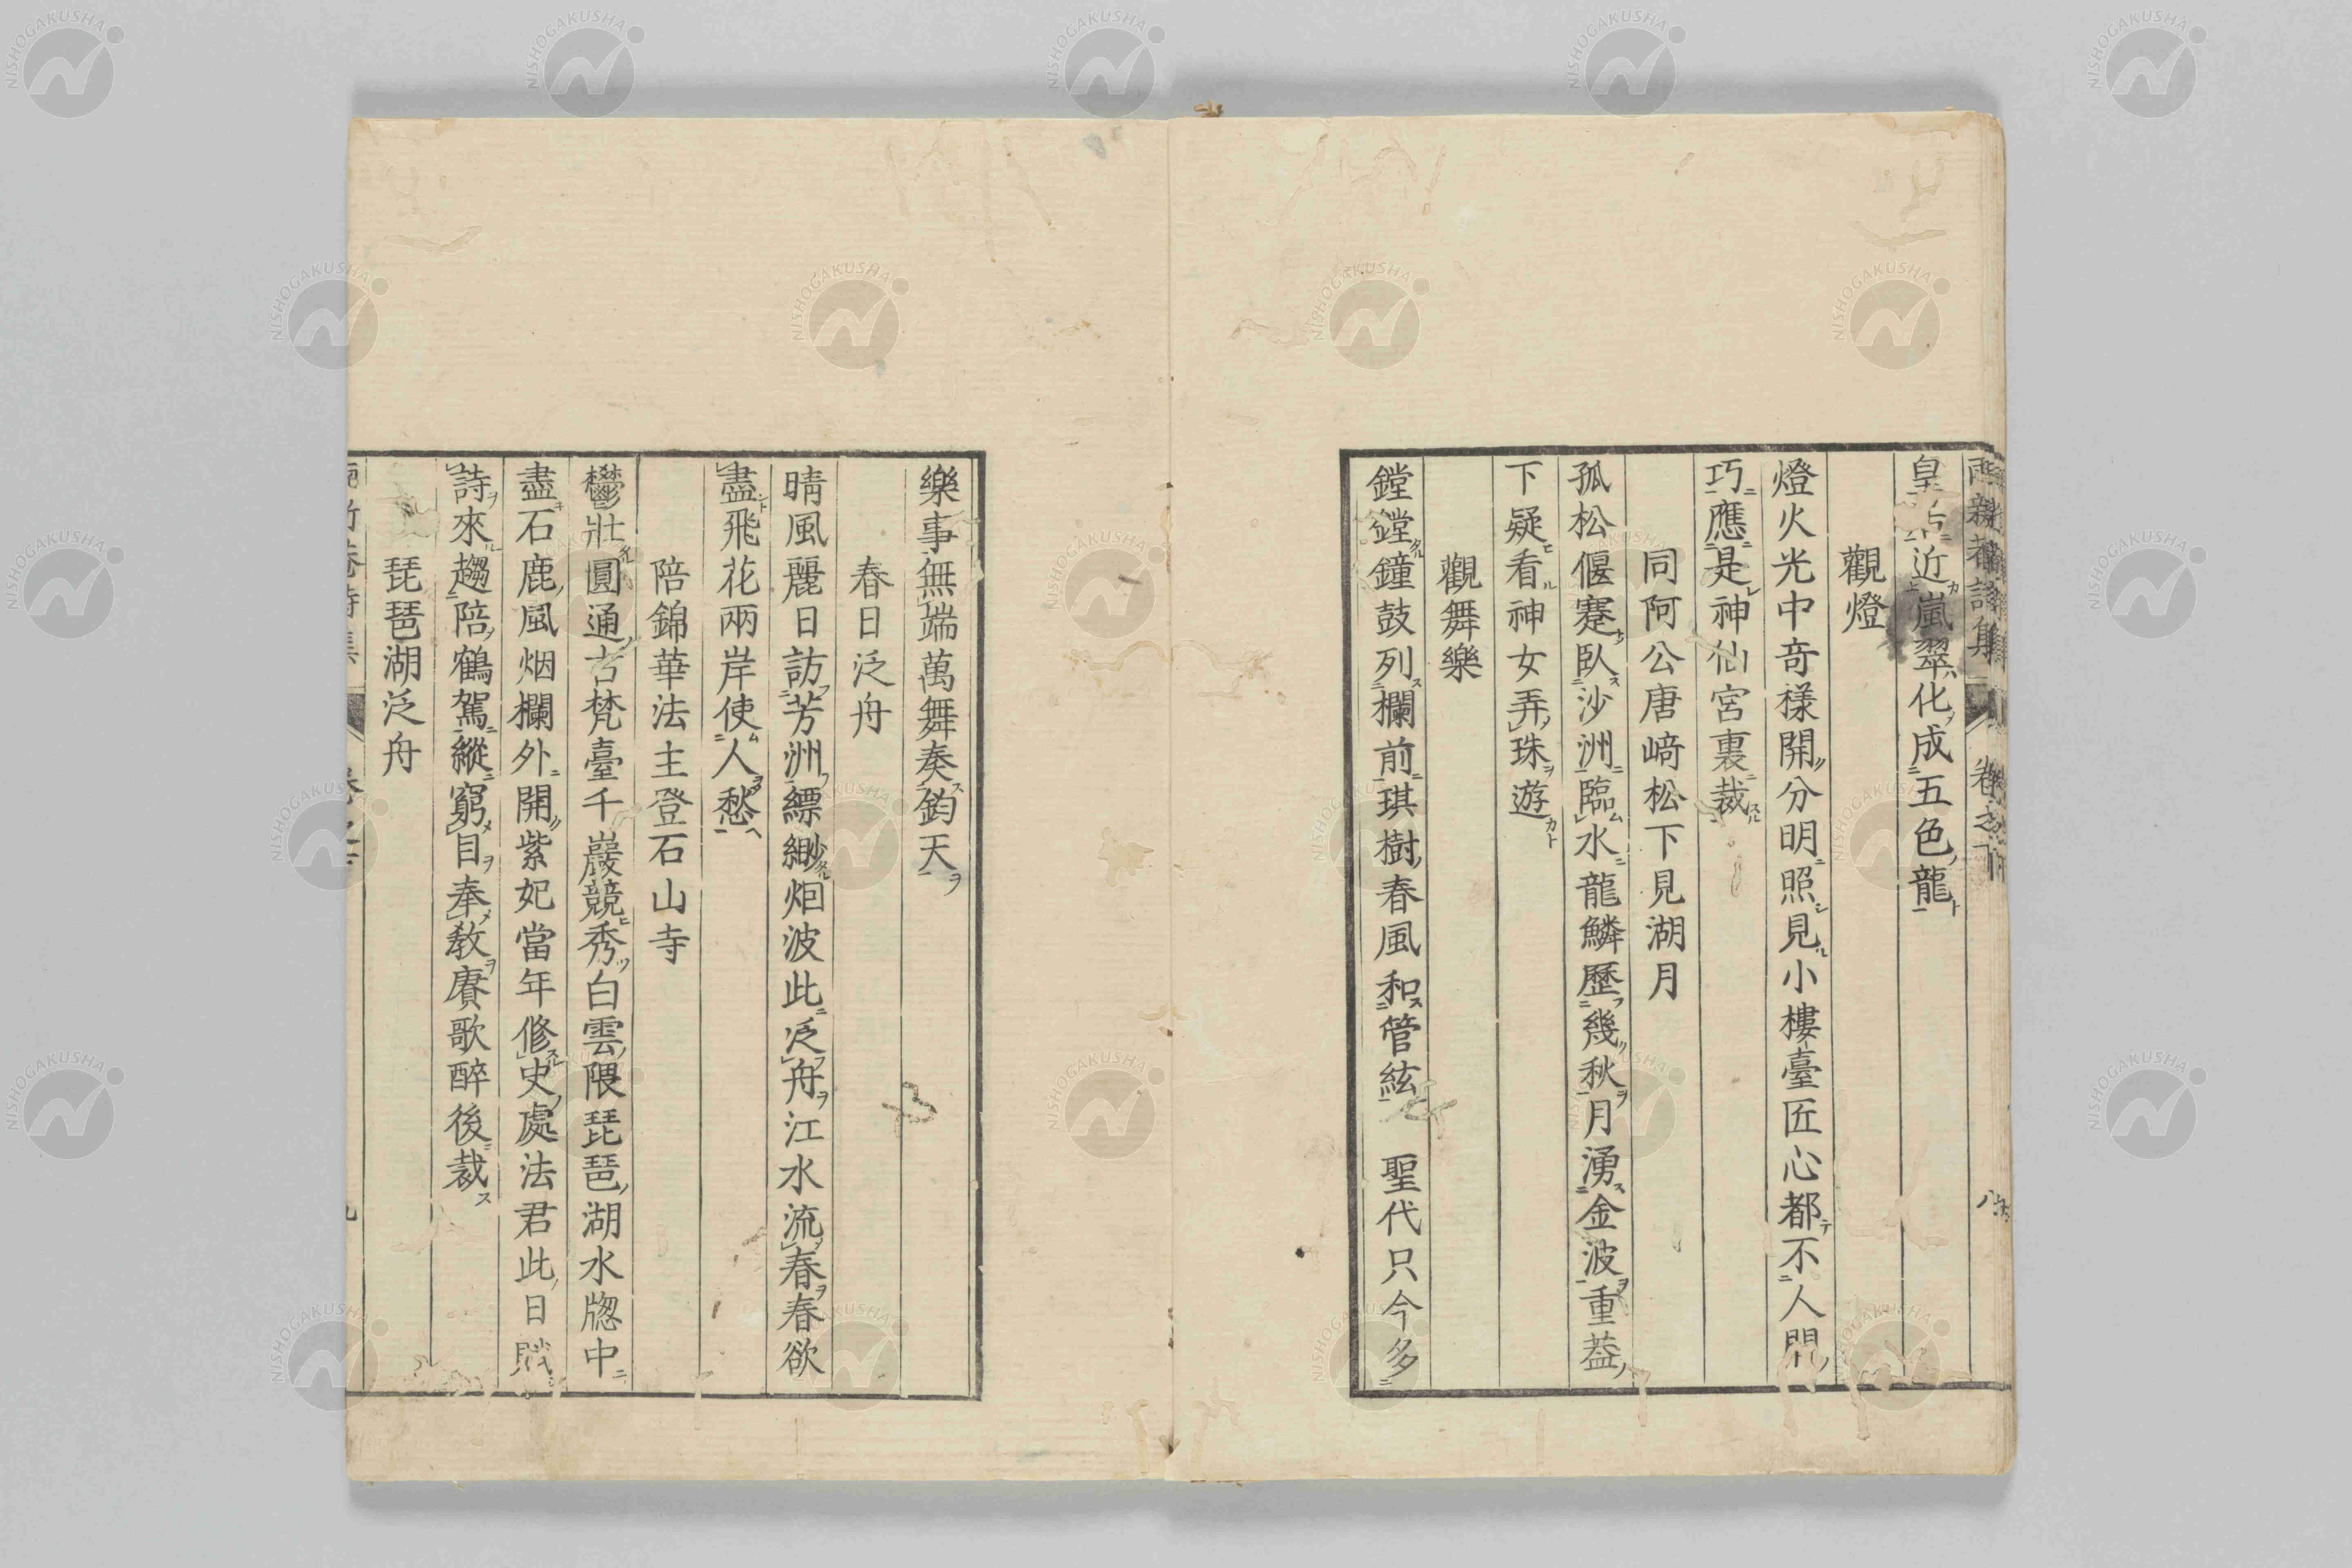 皇 近嵐翠化成五色龍
觀燈
燈火光中奇様開分明照見小樓臺匠心都不人間
巧應是神仙宮裏裁
同阿公唐﨑松下見湖月
孤松偃蹇臥沙洲臨水龍鱗歷幾秋月湧金波重葢
下疑看神女弄珠遊
觀舞樂
鏜鏜鐘鼓列欄前琪樹春風和管絃 聖代只今多
樂事無端萬舞奏鈞天
春日泛舟
晴風麗日訪芳洲縹緲烟波此泛舟江水流春春欲
盡飛花兩岸使人愁
陪錦華法主登石山寺
鬱壯圓通古梵臺千巖競秀白雲隈琵琶湖水牎中
盡石鹿風烟欄外開紫妃當年修史處法君此日賦
詩來趨陪鶴駕縱窮目奉教賡歌醉後裁
琵琶湖泛舟
卷之下
NISHOGAKUSHA